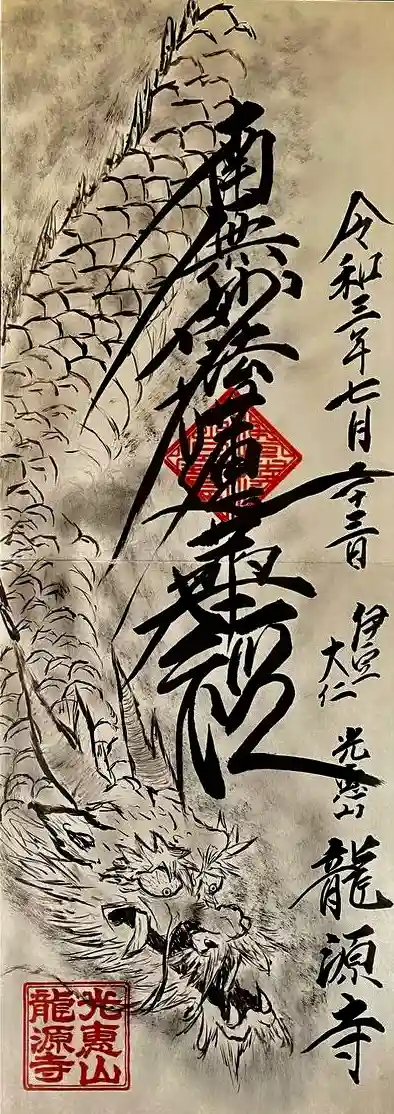 令和三年七月二十三日
伊豆
大仁
光惠山
龍源寺
南無妙法蓮華経
光惠山
龍源寺